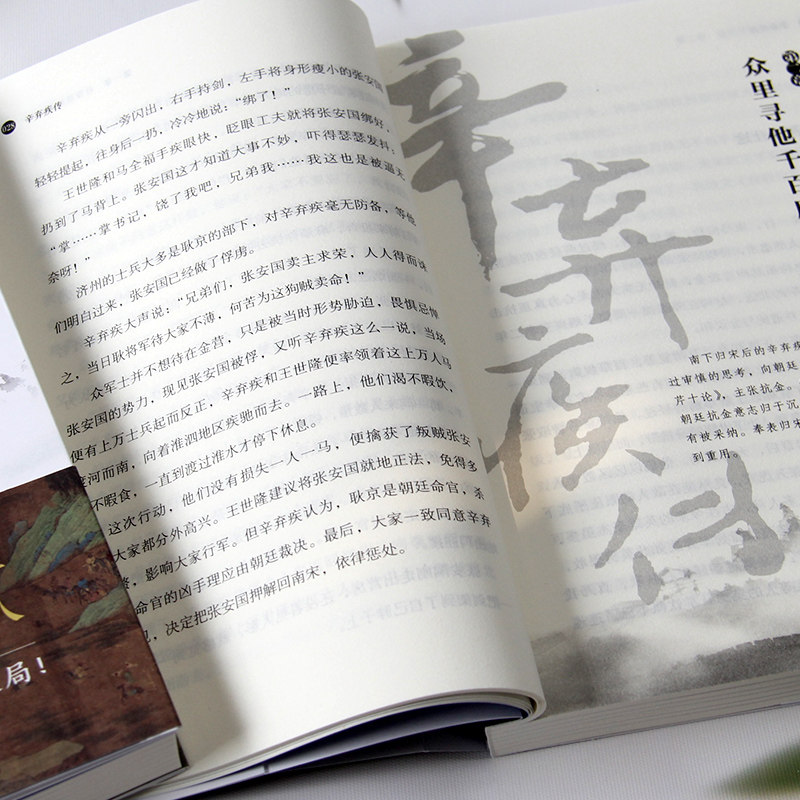 028 辛弃疾传
辛弃疾从一旁闪出，右手持剑，左手将身形瘦小的张安国
轻轻提起，往身后一扔，冷冷地说：“绑了！”
王世隆和马全福手疾眼快，眨眼工夫就将张安国绑好，
扔到了马背上。张安国这才知道大事不妙，吓得瑟瑟发抖：
“掌……掌书记，饶了我吧，兄弟我……我这也是被逼无
奈呀！”
济州的士兵大多是耿京的部下，对辛弃疾毫无防备，等他
们明白过来，张安国已经做了俘虏。
辛弃疾大声说：“兄弟们，张安国卖主求荣，人人得而诛
之，当日耿将军待大家不薄，何苦为这狗贼卖命！”
众军士并不想待在金营，只是被当时形势胁迫，畏惧忌惮
张安国的势力，现见张安国被俘，又听辛弃疾这么一说，当场
便有上万士兵起而反正，辛弃疾和王世隆便率领着这上万人马
渡河而南，向着淮泗地区疾驰而去。一路上，他们渴不暇饮，
不暇食，一直到渡过淮水才停下休息。
这次行动，他们没有损失一人一马，便擒获了叛贼张安
大家都分外高兴。王世隆建议将张安国就地正法，免得多
影响大家行军。但辛弃疾认为，耿京是朝廷命官，杀
命官的凶手理应由朝廷裁决。最后，大家一致同意辛弃
决定把张安国押解回南宋，依律惩处。
辛弃疾传
众里寻他千百
南下归宋后的辛弃疾
过审慎的思考，向朝廷
芹十论》，主张抗金。
朝廷抗金意志归于沉
有被采纳。奉表归宋
到重用。
局！